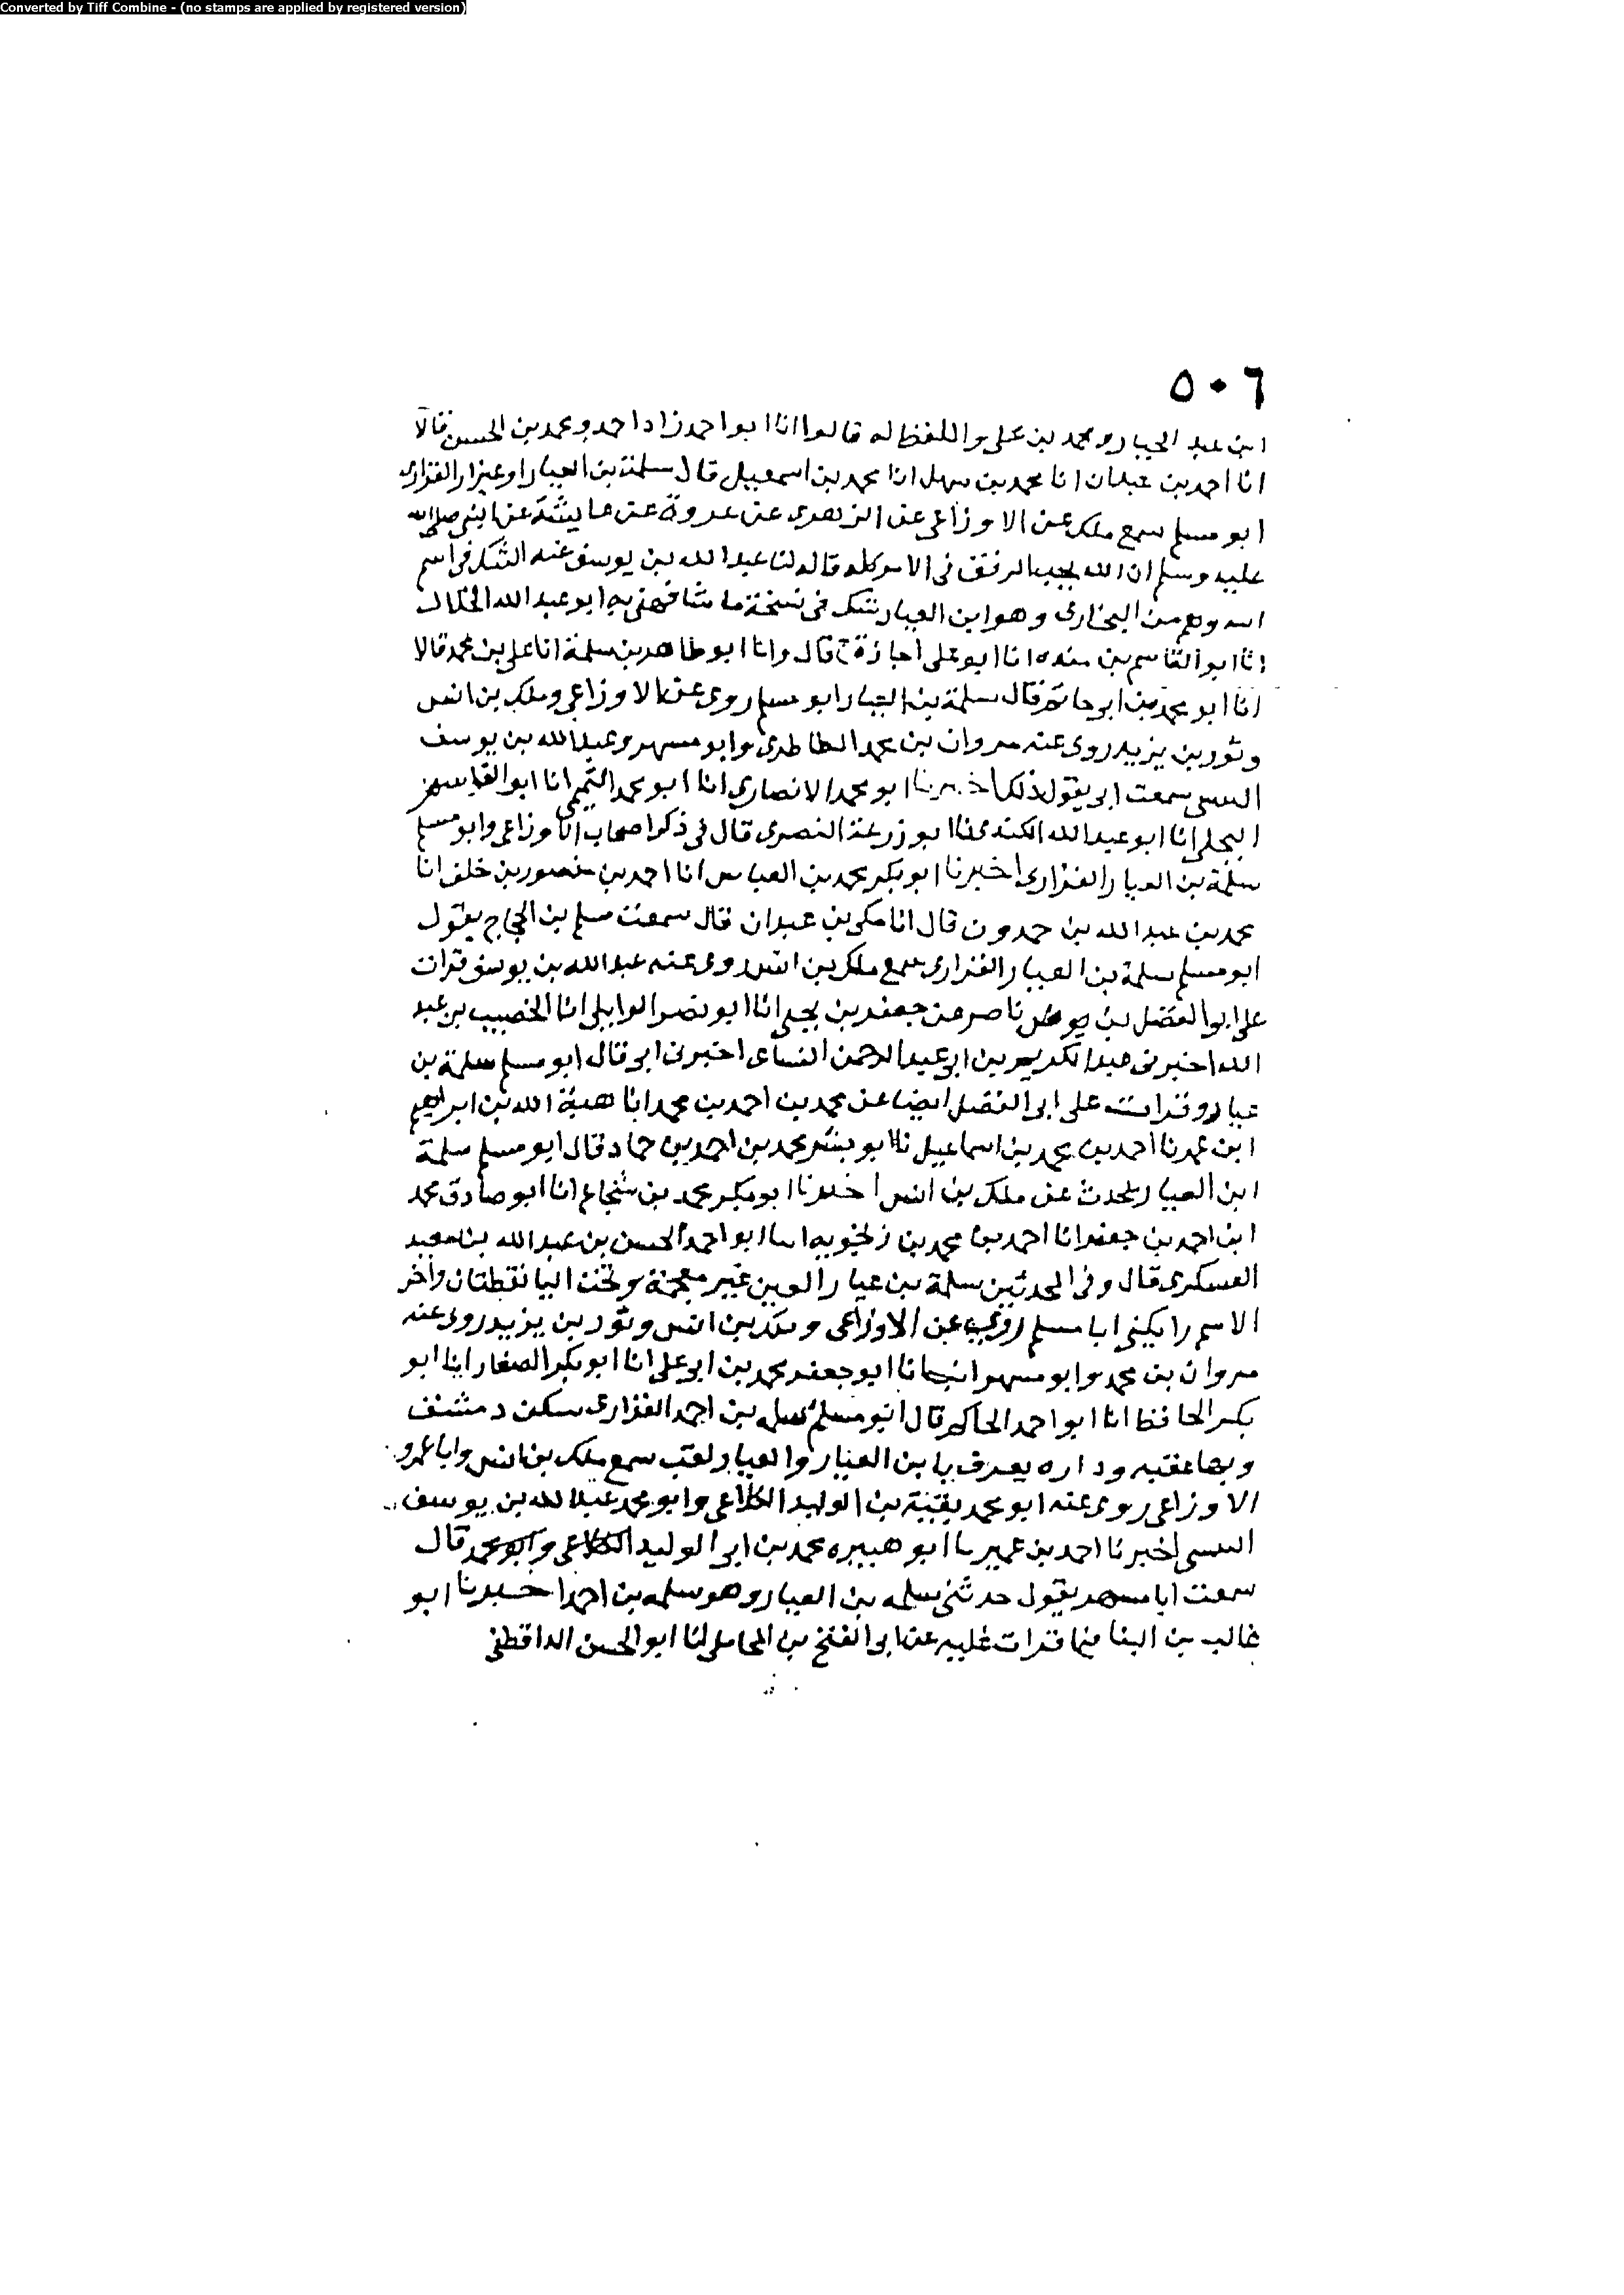 Converted by Tiff Combine - (no stamps are applied by registered version)
٥٠٦
ابن عبد الجبار ومحمد بن علي واللفظ له قالوا انا ابو احمد زاد احمد ومحمد بن الحسن قالا
انا احمد بن عبدان انا محمد بن سهل انا محمد بن اسمعيل قال سلمة بن العيار او عيزار الفزاري
ابو مسلم سمع ملك عن الاوزاعي عن الزهري عن عروة عن عايشة عن النبي صلى الله
عليه وسلم ان الله يحب الرفق في الامر كله قاله لنا عبد الله بن يوسف عنه الشك في اسم
ابيه وهم من البخاري وهو ابن العيار شك في نسخة ما شافهني به ابو عبد الله الخلال
انا ابو القاسم بن منده انا ابو علي اجازة ح قال وانا ابو طاهر بن سلمة انا علي بن محمد قالا
انا ابو محمد بن ابي حاتم قال سلمة بن العيار ابو مسلم روى عن الاوزاعي وملك بن انس
وثور بن يزيد روى عنه مروان بن محمد الطاطري وابو مسهر وعبد الله بن يوسف
التنيسي سمعت ابي يقول ذلك اخبرنا ابو محمد الانصاري انا ابو محمد التميمي انا ابو القاسم
البجلي انا ابو عبد الله الكندي نا ابو زرعة النصري قال في ذكر اصحاب الاوزاعي وابو مسلم
سلمة بن العيار الفزاري اخبرنا ابو بكر محمد بن العباس انا احمد بن منصور بن خلف انا
محمد بن عبد الله بن حمدون قال انا مكي بن عبدان قال سمعت مسلم بن الحجاج يقول
ابو مسلم سلمة بن العيار الفزاري سمع ملك بن انس روى عنه عبد الله بن يوسف قرات
على ابو الفضل بن ناصر عن جعفر بن يحيى انا ابو نصر الوايلي انا الخصيب بن عبد
الله اخبرني عبد الكريم بن ابي عبد الرحمن النساي اخبرني ابي قال ابو مسلم سلمة بن
عيار وقرات على ابي الفضل ايضا عن محمد بن احمد بن محمد انا هبة الله بن ابراهيم
ابن عمر نا احمد بن محمد بن اسماعيل نا ابو بشر محمد بن احمد بن حماد قال ابو مسلم سلمة
ابن العيار يحدث عن ملك بن انس اخبرنا ابو بكر محمد بن شجاع انا ابو صادق محمد
ابن احمد بن جعفر انا احمد بن محمد بن زنجويه انا ابو احمد الحسن بن عبد الله بن سعيد
العسكري قال وفي المحدثين سلمة بن عيار العين غير معجمة وتحت اليا نقطتان واخر
الاسم را يكنى ابا مسلم روى عن الاوزاعي وملك بن انس وثور بن يزيد روى عنه
مروان بن محمد وابو مسهر انبانا ابو جعفر محمد بن ابي علي انا ابو بكر الصفار انا ابو
بكر الحافظ انا ابو احمد الحاكم قال ابو مسلم سلمة بن احمد الفزاري سكن دمشق
وبها عقبه وداره يعرف بابن العيار والعيار لقب سمع ملك بن انس وابا عمرو
الاوزاعي روى عنه ابو محمد بقية بن الوليد الكلاعي وابو محمد عبد الله بن يوسف
التنيسي اخبرنا احمد بن عمير نا ابو هبيره محمد بن ابي الوليد الكلاعي وابو محمد قال
سمعت ابا مسهر يقول حدثني سلمه بن العيار وهو سلمه بن احمد اخبرنا ابو
غالب بن البنا فيما قرات عليه عن ابي الفتح بن المحاملي لنا ابو الحسن الداقطني